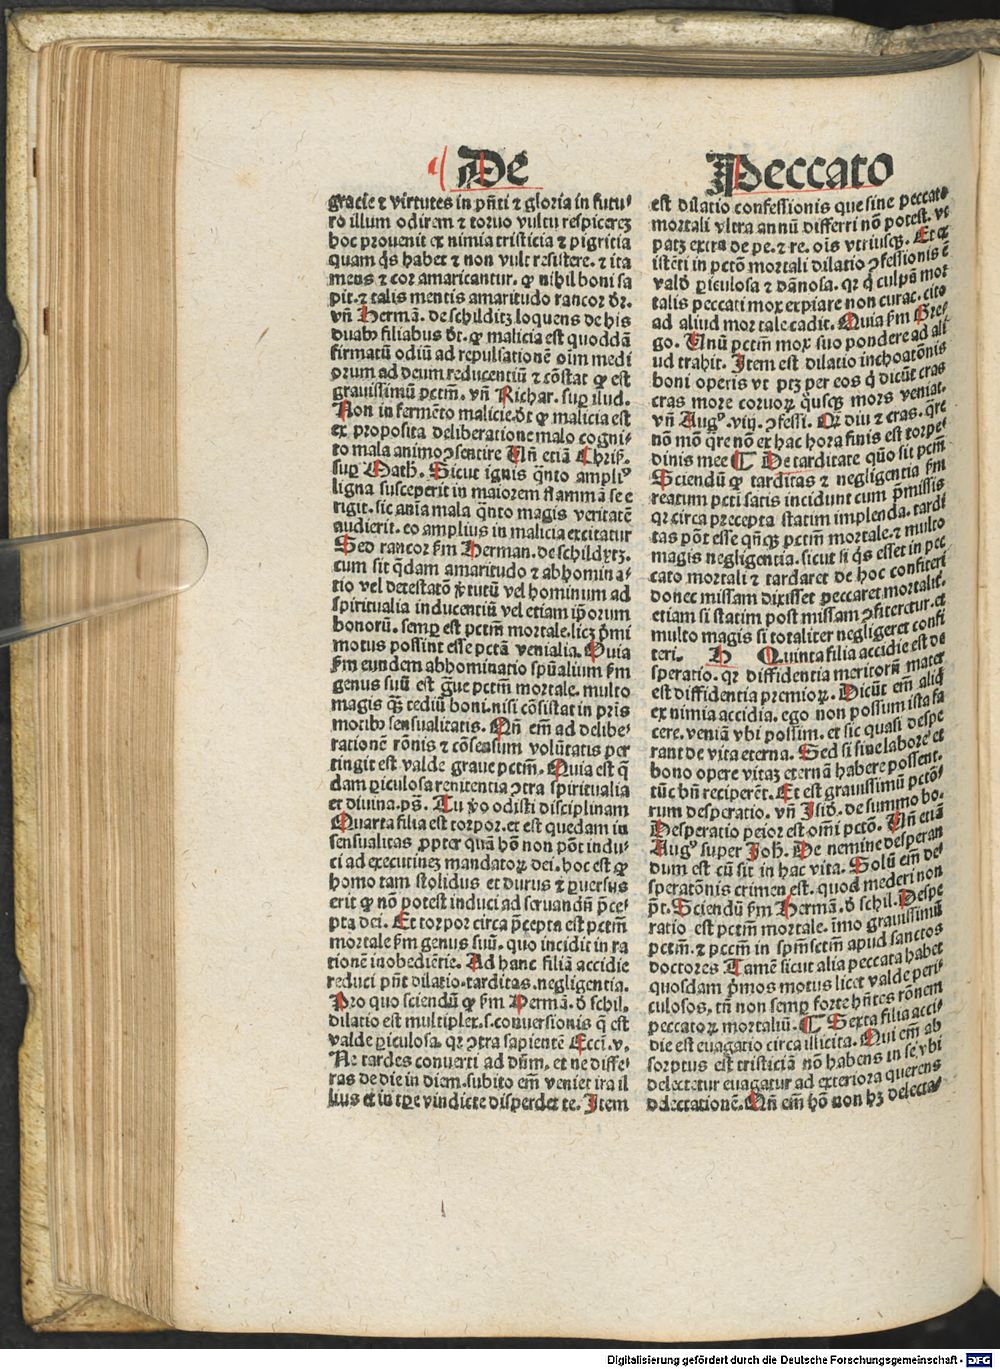 De Peccato
gracie ⁊ virtutes in pn̄ti ⁊ gloria in futu⸗
ro illum odirem ⁊ toruo vultu respicereꝫ
hoc prouenit ex nimia tristicia ⁊ pigritia
quam q̇s habet ⁊ non vult resistere. ⁊ ita
mens ⁊ cor amaricantur. ꝙ nihil boni sa
pit. ⁊ talis mentis amaritudo rancor dr̄.
vn̄ Hermā. de schilditꝫ loquens de his
duabꝰ filiabus dt̄. ꝙ malicia est quoddā
firmatū odiū ad repulsationē oīm medi
orum ad deum reducentiū ⁊ cōstat ꝙ est
grauissimū pctm̄. vn̄ Richar. suꝑ illud.
Non in fermēto malicie. dt̄ ꝙ malicia est
ex proposita deliberatione malo cogni⸗
to mala animo ꝯsentire Un̄ etiā Chris̄.
suꝑ Math̄. Sicut ignis q̄nto ampliꝰ
ligna susceperit in maiorem flammā se e
rigit. sic anīa mala q̄nto magis veritatē
audierit. eo amplius in malicia excitatur
Sed rancor ẜm Herman. de schildꝛtꝫ.
cum sit q̄dam amaritudo ⁊ abhomina⸗
tio vel detestatō v̓tutū vel hominum ad
spiritualia inducentiū vel etiam ip̄orum
bonorū. semꝑ est pctm̄ mortale. licꝫ p̄mi
motus possint esse pctā venialia. Quia
ẜm eundem abhominatio spūalium ẜm
genus suū est g̓ue pctm̄ mortale. multo
magis qꝫ̄ tediū boni. nisi cōsistat in pris
motibꝰ sensualitatis. Qn̄ em̄ ad delibe⸗
rationē rōnis ⁊ cōsensum volūtatis per
tingit est valde graue pctm̄. Quia est q̄
dam ꝑiculosa renitentia ꝯtra spiritualia
et diuina. pꝭ. Tu v̓o odisti disciplinam
Quarta filia est torpor. et est quedam in
sensualitas ꝓpter quā hō non pōt indu⸗
ci ad executineꝫ mandatoꝝ dei. hoc est ꝙ
homo tam stolidus et durus ⁊ ꝑuersus
erit ꝙ nō potest induci ad seruandū p̄ce⸗
pta dei. Et torpor circa p̄cepta est pctm̄
mortale ẜm genus suū. quo incidit in ra
tionē inobediētie. Ad hanc filiā accidie
reduci pn̄t dilatio. tarditas. negligentia.
Pro quo sciendū ꝙ ẜm Hermā. d̓ schil.
dilatio est multiplex. s. conuersionis q̄ est
valde ꝑiculosa. qꝛ ꝯtra sapientē Eccī. v.
Ne tardes conuerti ad dn̄m. et ne diffe⸗
ras de die in diem. subito em̄ veniet ira il
lius et in tꝑe vindicte disperdet te. Item
est dilatio confessionis que sine peccato
mortali vltra annū differri nō potest. vt
patꝫ extra de pe. ⁊ re. oīs vtriusqꝫ. Et qꝛ
istēti in pctō mortali dilatio ꝯfessionis ē
vald̓ ꝑiculosa ⁊ dānosa. qꝛ q̇ culpā mor
talis peccati mox expiare non curat. cito
ad aliud mortale cadit. Quia ẜm Gre⸗
go. Unū pctm̄ mox suo pondere ad ali
ud trahit. Item est dilatio inchoatōnis
boni operis vt ptꝫ per eos q̇ dicūt cras
cras more coruoꝝ q̇usqꝫ mors veniat.
vn̄ Augꝰ. viij. ꝯfessi. Qꝛ diu ⁊ cras. q̄re
nō mō q̄re nō ex hac hora finis est torpe⸗
dinis mee ¶ De tarditate quō sit pctm̄
Sciendū ꝙ tarditas ⁊ negligentia ẜm
reatum pcti satis incidunt cum p̄missis
qꝛ circa precepta statim implenda. tardi
tas pōt esse qn̄qꝫ pctm̄ mortale. ⁊ multo
magis negligentia. sicut si q̇s esset in pec
cato mortali ⁊ tardaret de hoc confiteri
donec missam dixisset peccaret mortalit̓.
etiam si statim post missam ꝯfiteretur. et
multo magis si totaliter negligeret confi
teri. H Quinta filia accidie est de
speratio. qꝛ diffidentia meritorū mater
est diffidentia premioꝝ. Dicūt em̄ aliq̇
ex nimia accidia. ego non possum ista fa
cere. veniā vbi possim. et sic quasi despe
rant de vita eterna. Sed si sine labore et
bono opere vitaꝫ eternā habere possent.
tūc bn̄ reciperēt. Et est grauissimū pctō⸗
rum desperatio. vn̄ Isid̓. de summo bo.
Desperatio peior est om̄i pctō. Un̄ etiā
Augꝰ super Joh̄. De nemine desperan
dum est cū sit in hac vita. Solū em̄ de⸗
speratōnis crimen est. quod mederi non
pt̄. Sciendū ẜm Hermā. d̓ schil. Despe
ratio est pctm̄ mortale. īmo grauissimū
pctm̄. ⁊ pctm̄ in spm̄sctm̄ apud sanctos
doctores Tamē sicut alia peccata habet
quosdam p̄mos motus licet valde peri⸗
culosos, tn̄ non semꝑ forte hn̄tes rōnem
peccatoꝝ mortaliū. ¶ Sexta filia acci⸗
die est euagatio circa illicita. Qui em̄ ab
sorptus est tristiciā nō habens in se vbi
delectetur euagatur ad exteriora querens
delectationē. Qn̄ em̄ hō non hꝫ delecta⸗
Digitalisierung gefördert durch die Deutsche Forschungsgemeinschaft - DFG